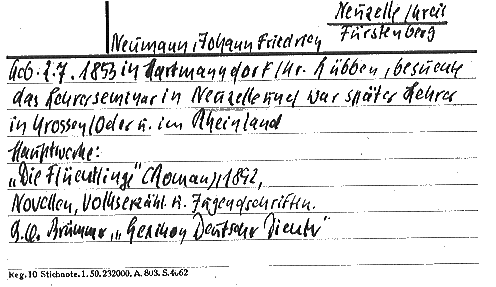 Neuzelle/Kreis
Fürstenberg
Neumann, Johann Friedrich
Geb. 2.7.1853 in Hartmannsdorf/Kr. Lübben, besuchte
das Lehrerseminar in Neuzelle und war später Lehrer
in Crossen/Oder u. im Rheinland
Hauptwerke:
„Die Flüchtlinge" (Roman), 1892,
Novellen, Volkserzähl. u. Jugendschriften.
Brümmer, „Lexikon Deutscher Dichter"
Reg. 10 Stichnote. 1. 50. 232000. A. 803. S. 4.62